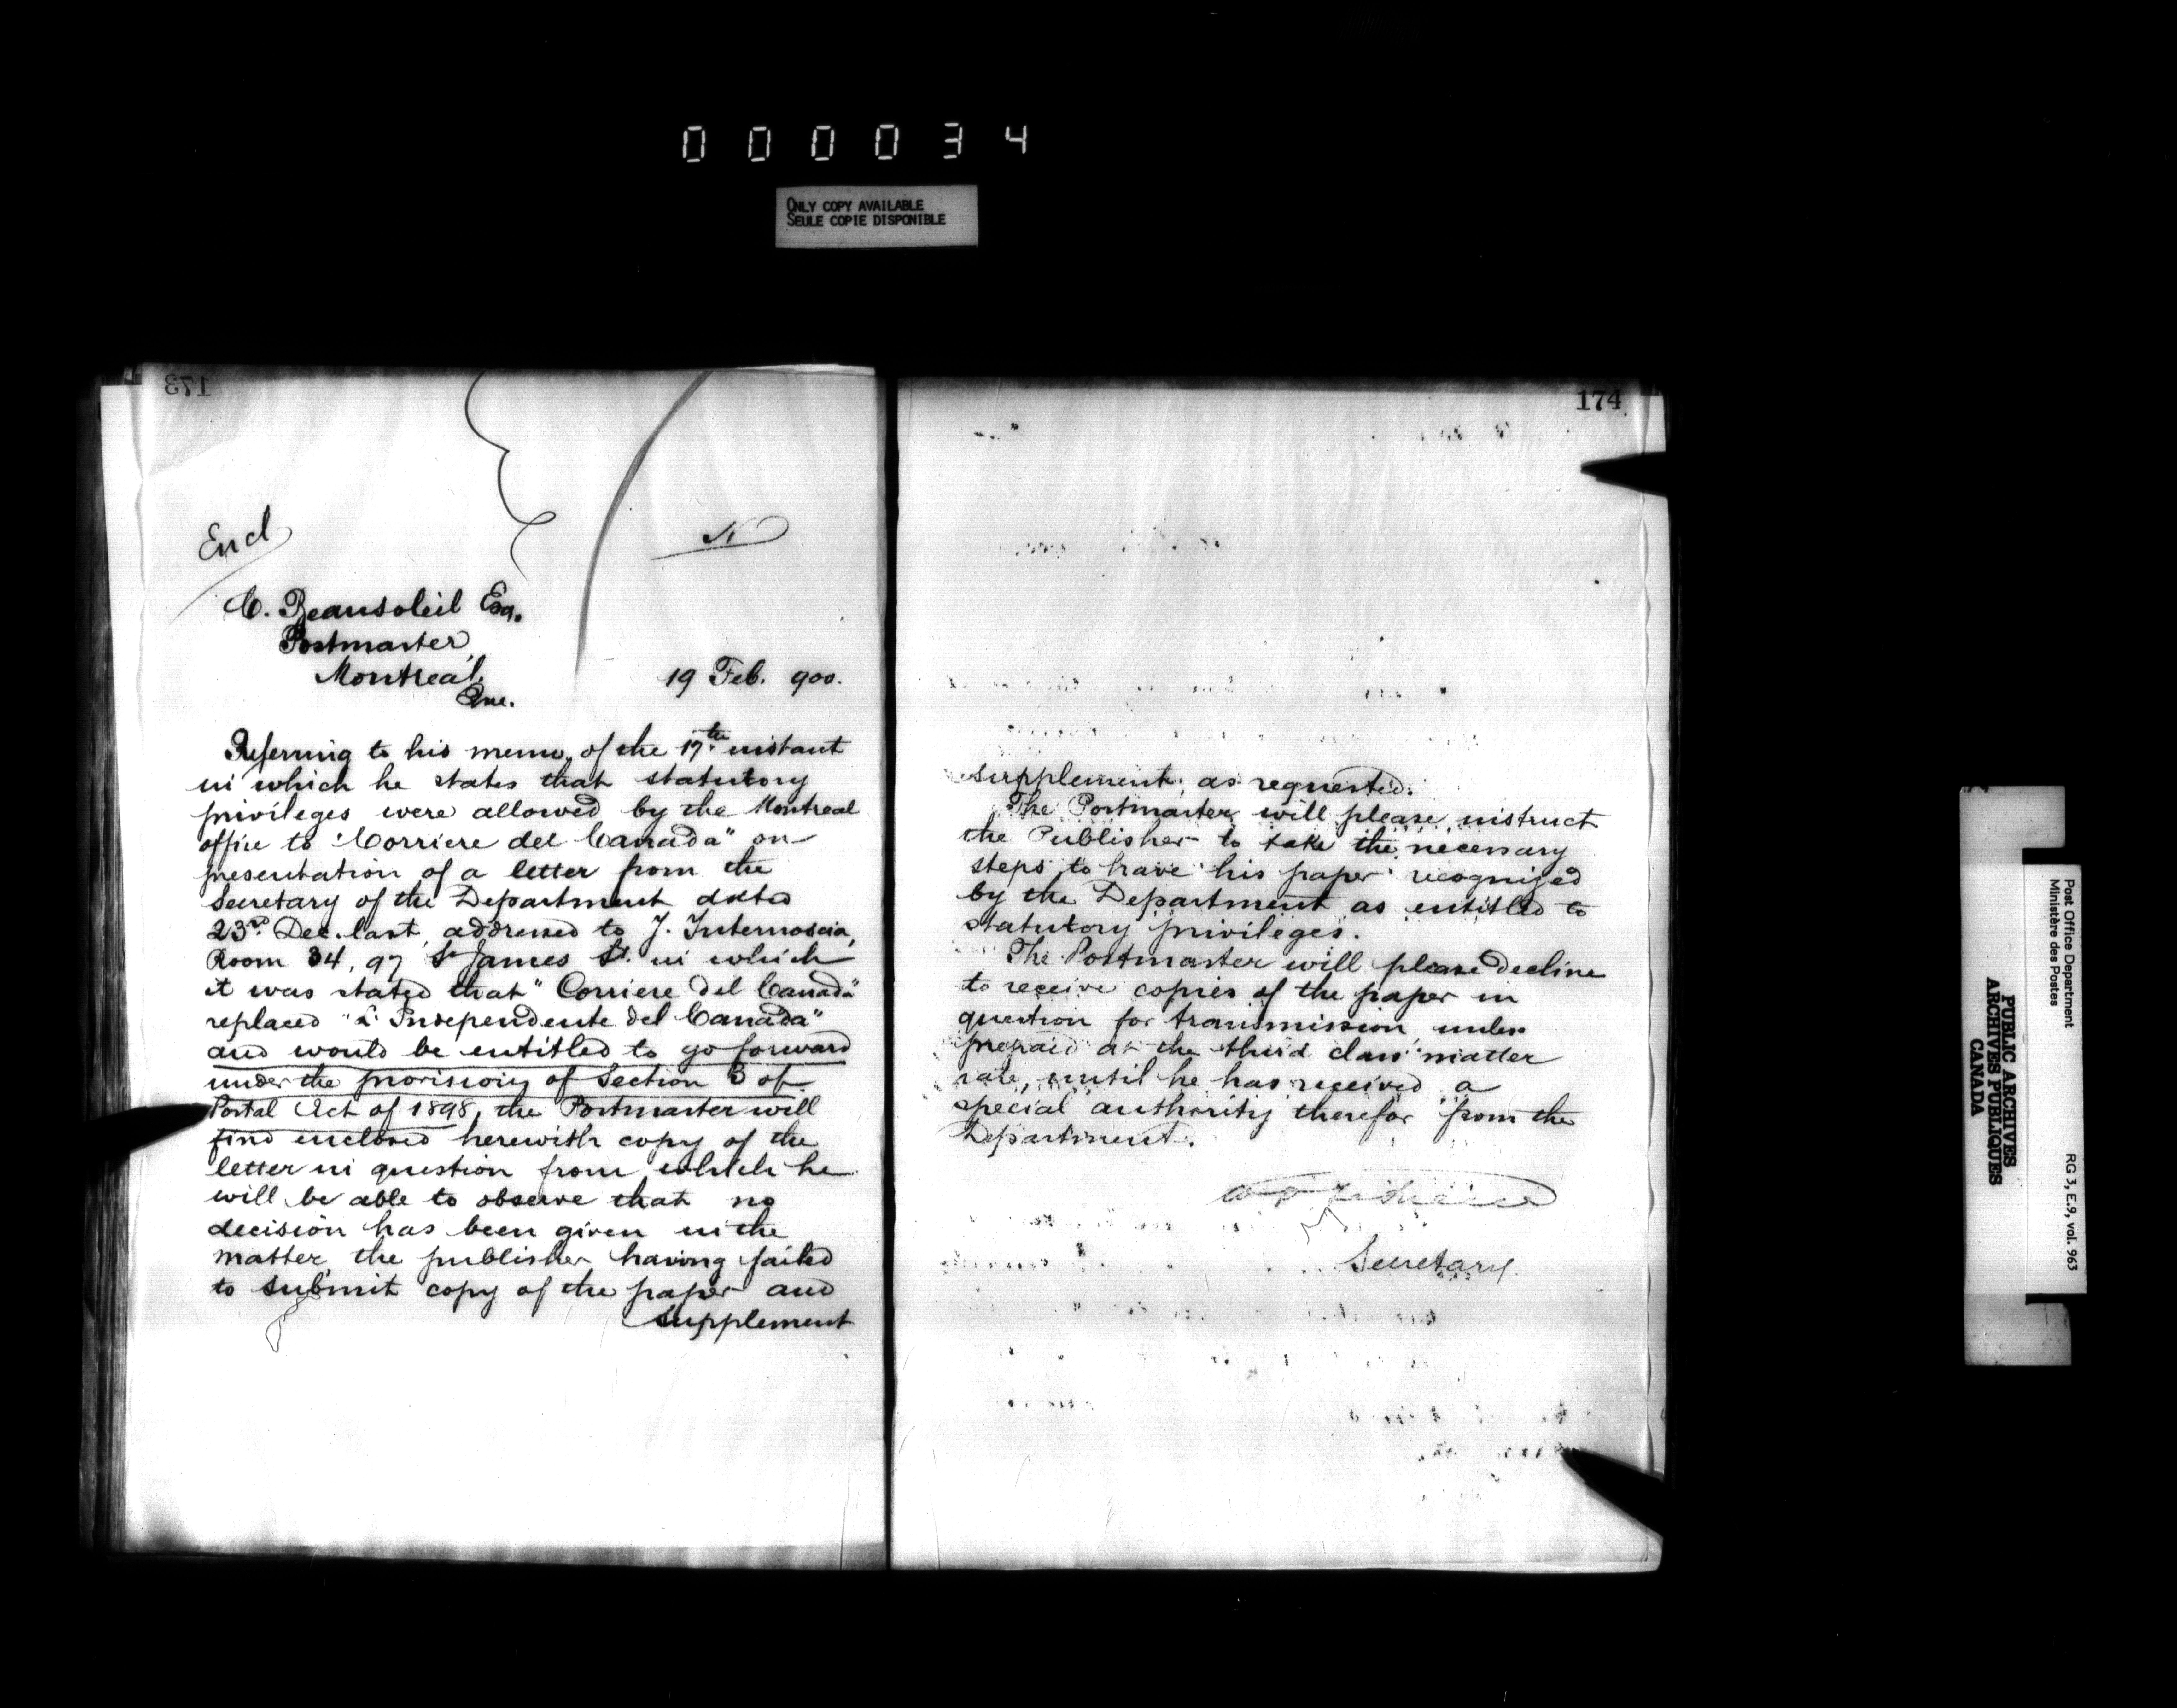 000034
ONLY COPY AVAILABLE
SEULE COPIE DISPONIBLE
173
Encl
N
C. Beausoleil Esq.
Postmaster,
Montreal,
Que.
19 Feb. 900.
Referring to his memo, of the 17th instant
in which he states that statutory
privileges were allowed by the Montreal
office to "Corriere del Canada" on
presentation of a letter from the
Secretary of the Department dated
23rd Dec. last, addressed to J. Internoscia,
Room 34, 97 St James St. in which
it was stated that "Corriere del Canada"
replaced "L'Independente del Canada"
and would be entitled to go forward
under the provisions of Section 3 of
Postal Act of 1898, the Postmaster will
find enclosed herewith copy of the
letter in question from which he
will be able to observe that no
decision has been given in the
matter, the publisher having failed
to submit copy of the paper and
supplement
174
supplement, as requested.
The Postmaster will please instruct
the Publisher to take the necessary
steps to have his paper recognized
by the Department as entitled to
statutory privileges.
The Postmaster will please decline
to receive copies of the paper in
question for transmission unless
prepaid at the third class matter
rate, until he has received a
special authority therefor from the
Department.
Secretary.
Post Office Department
Ministère des Postes
RG 3, E.9, vol. 963
PUBLIC ARCHIVES
ARCHIVES PUBLIQUES
CANADA